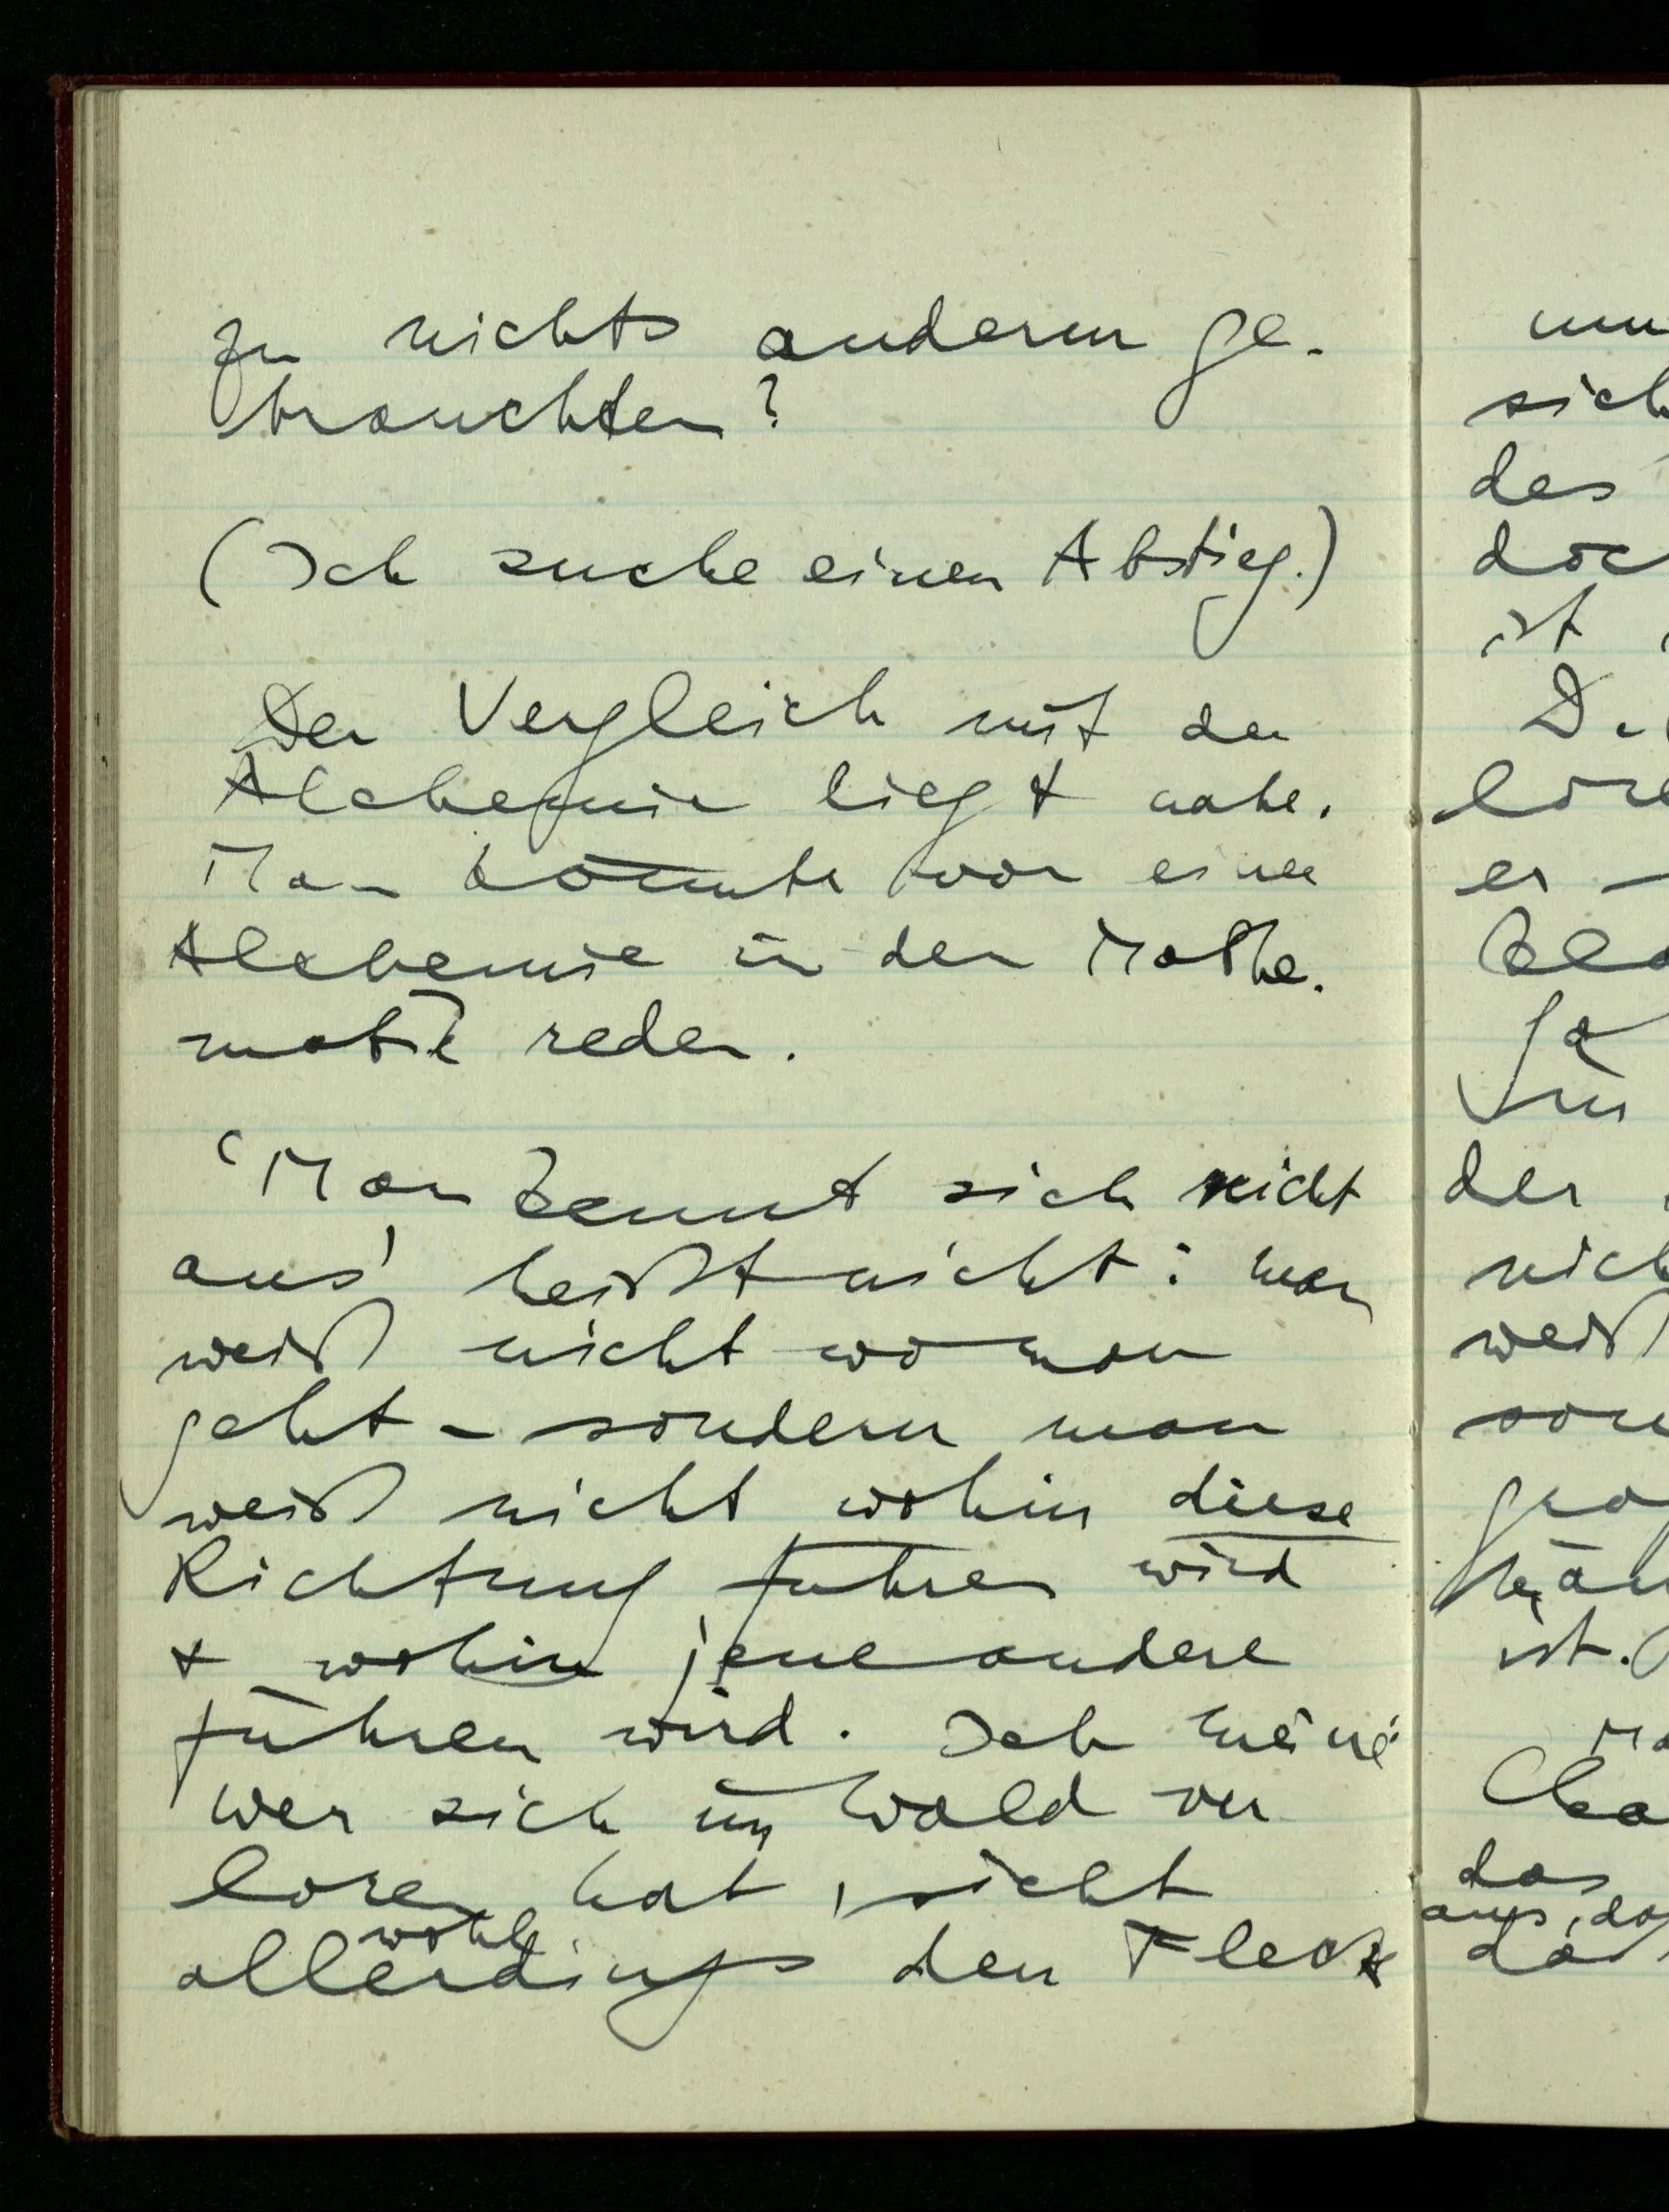 zu nichts anderem ge-
brauchten?
(Ich suche einen Abstieg.)
Der Vergleich mit der
Alchemie liegt nahe.
Man könnte von einer
Alchemie in der Mathe-
matik reden.
‘Man kennt sich nicht
aus’ heißt nicht: man
weiß nicht wo man
geht – sondern man
weiß nicht wohin diese
Richtung führen wird
& wohin jene andere
führen wird. Ich meine:
wer sich im Wald ver
loren hat, sieht
wohl
allerdings den Fleck
sich
des
ist
er
der
weiß
ist.
das